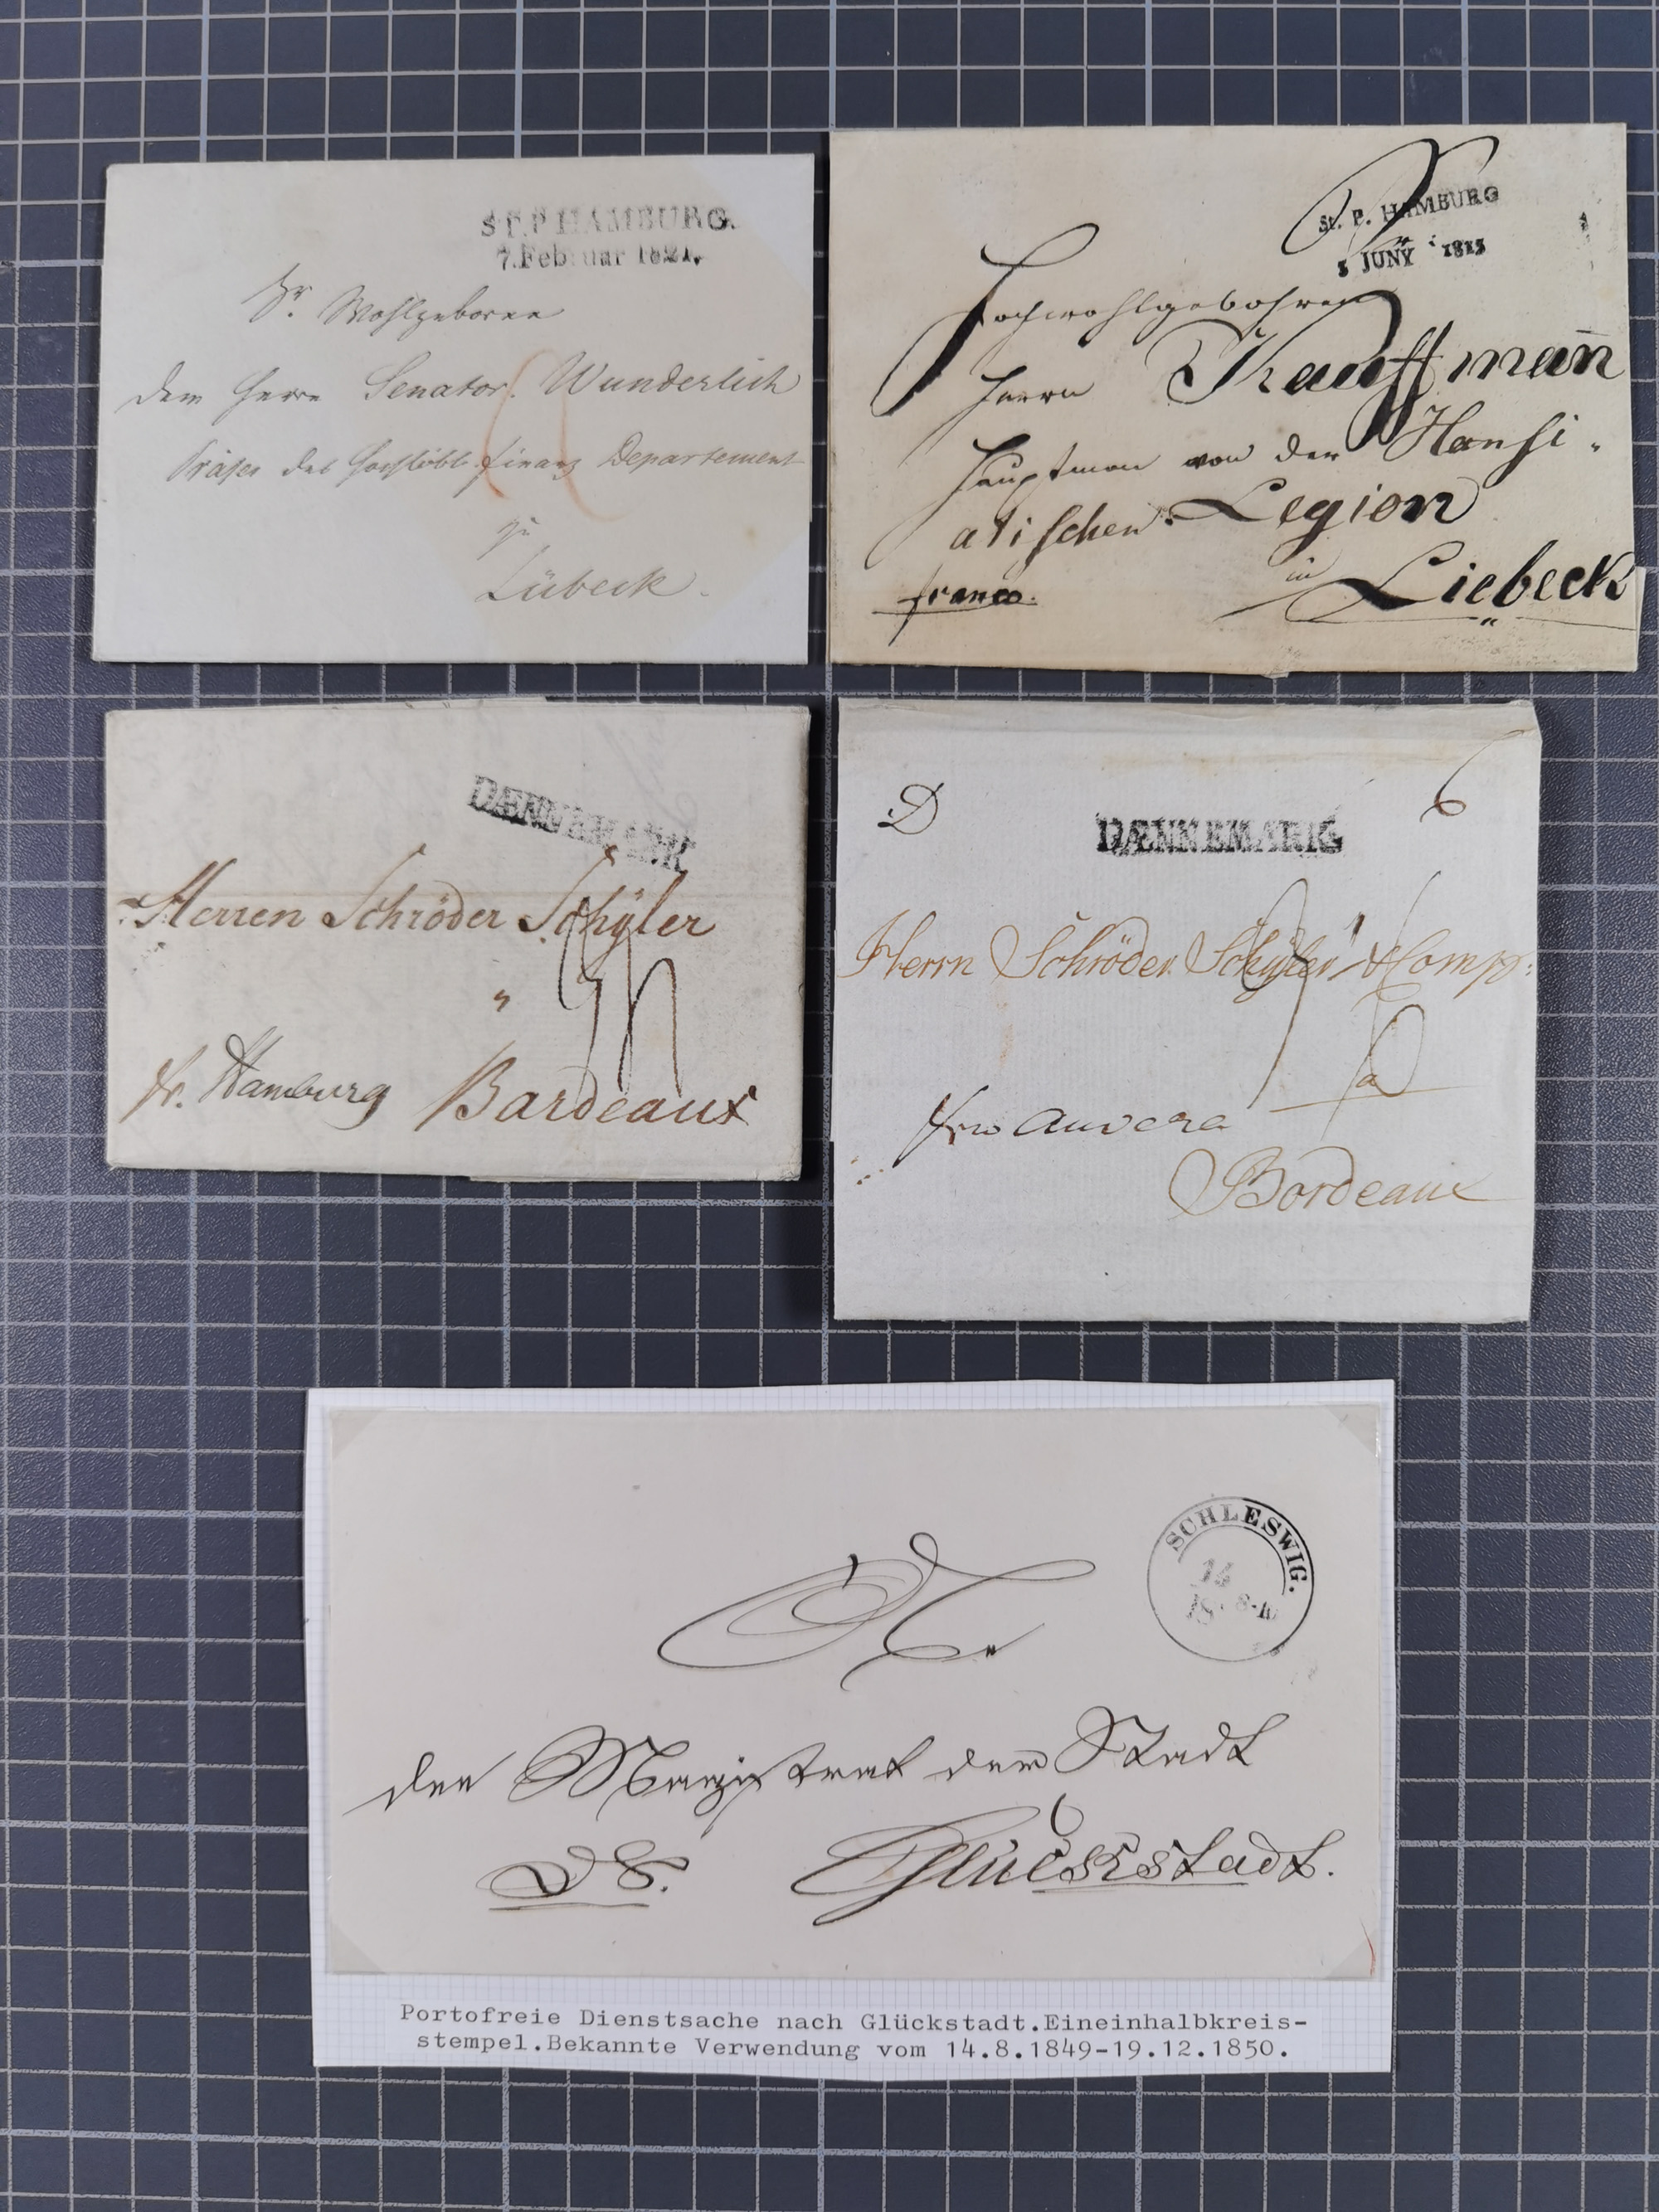 ST.P HAMBURG.
7. Februar 1821.
Sr. Wohlgeboren
dem Herrn Senator Wunderlich
Präses des Hochlöbl. Finanz Departement
zu
Lübeck.
St. P. HAMBURG
3 JUNY 1813
Hochwohlgebohren
Herrn Kauffmañ
Hauptman von der Hansi-
atischen Legion
in Liebeck
franco.
DÆNNEMARK
Herren Schröder Schÿler
Fr. Hamburg Bardeaux
D
6
DÆNNEMARK
Herrn Schröder Schÿler & Comp:
a
Bordeaux
SCHLESWIG.
14
8-10
An
den Magistrat der Stadt
D S. Glückstadt.
Portofreie Dienstsache nach Glückstadt.Eineinhalbkreis-
stempel.Bekannte Verwendung vom 14.8.1849-19.12.1850.